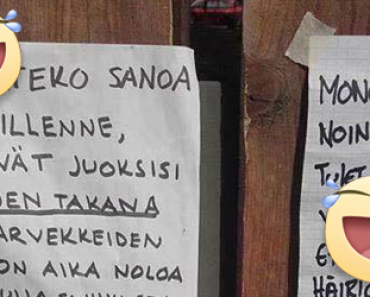 TEKO SANOA
ILLENNE,
VÄT JUOKSISI
DEN TAKANA
ARVEKKEIDEN
ON AIKA NOLOA
MON
NOIN
TULET
HÄIRIÖ